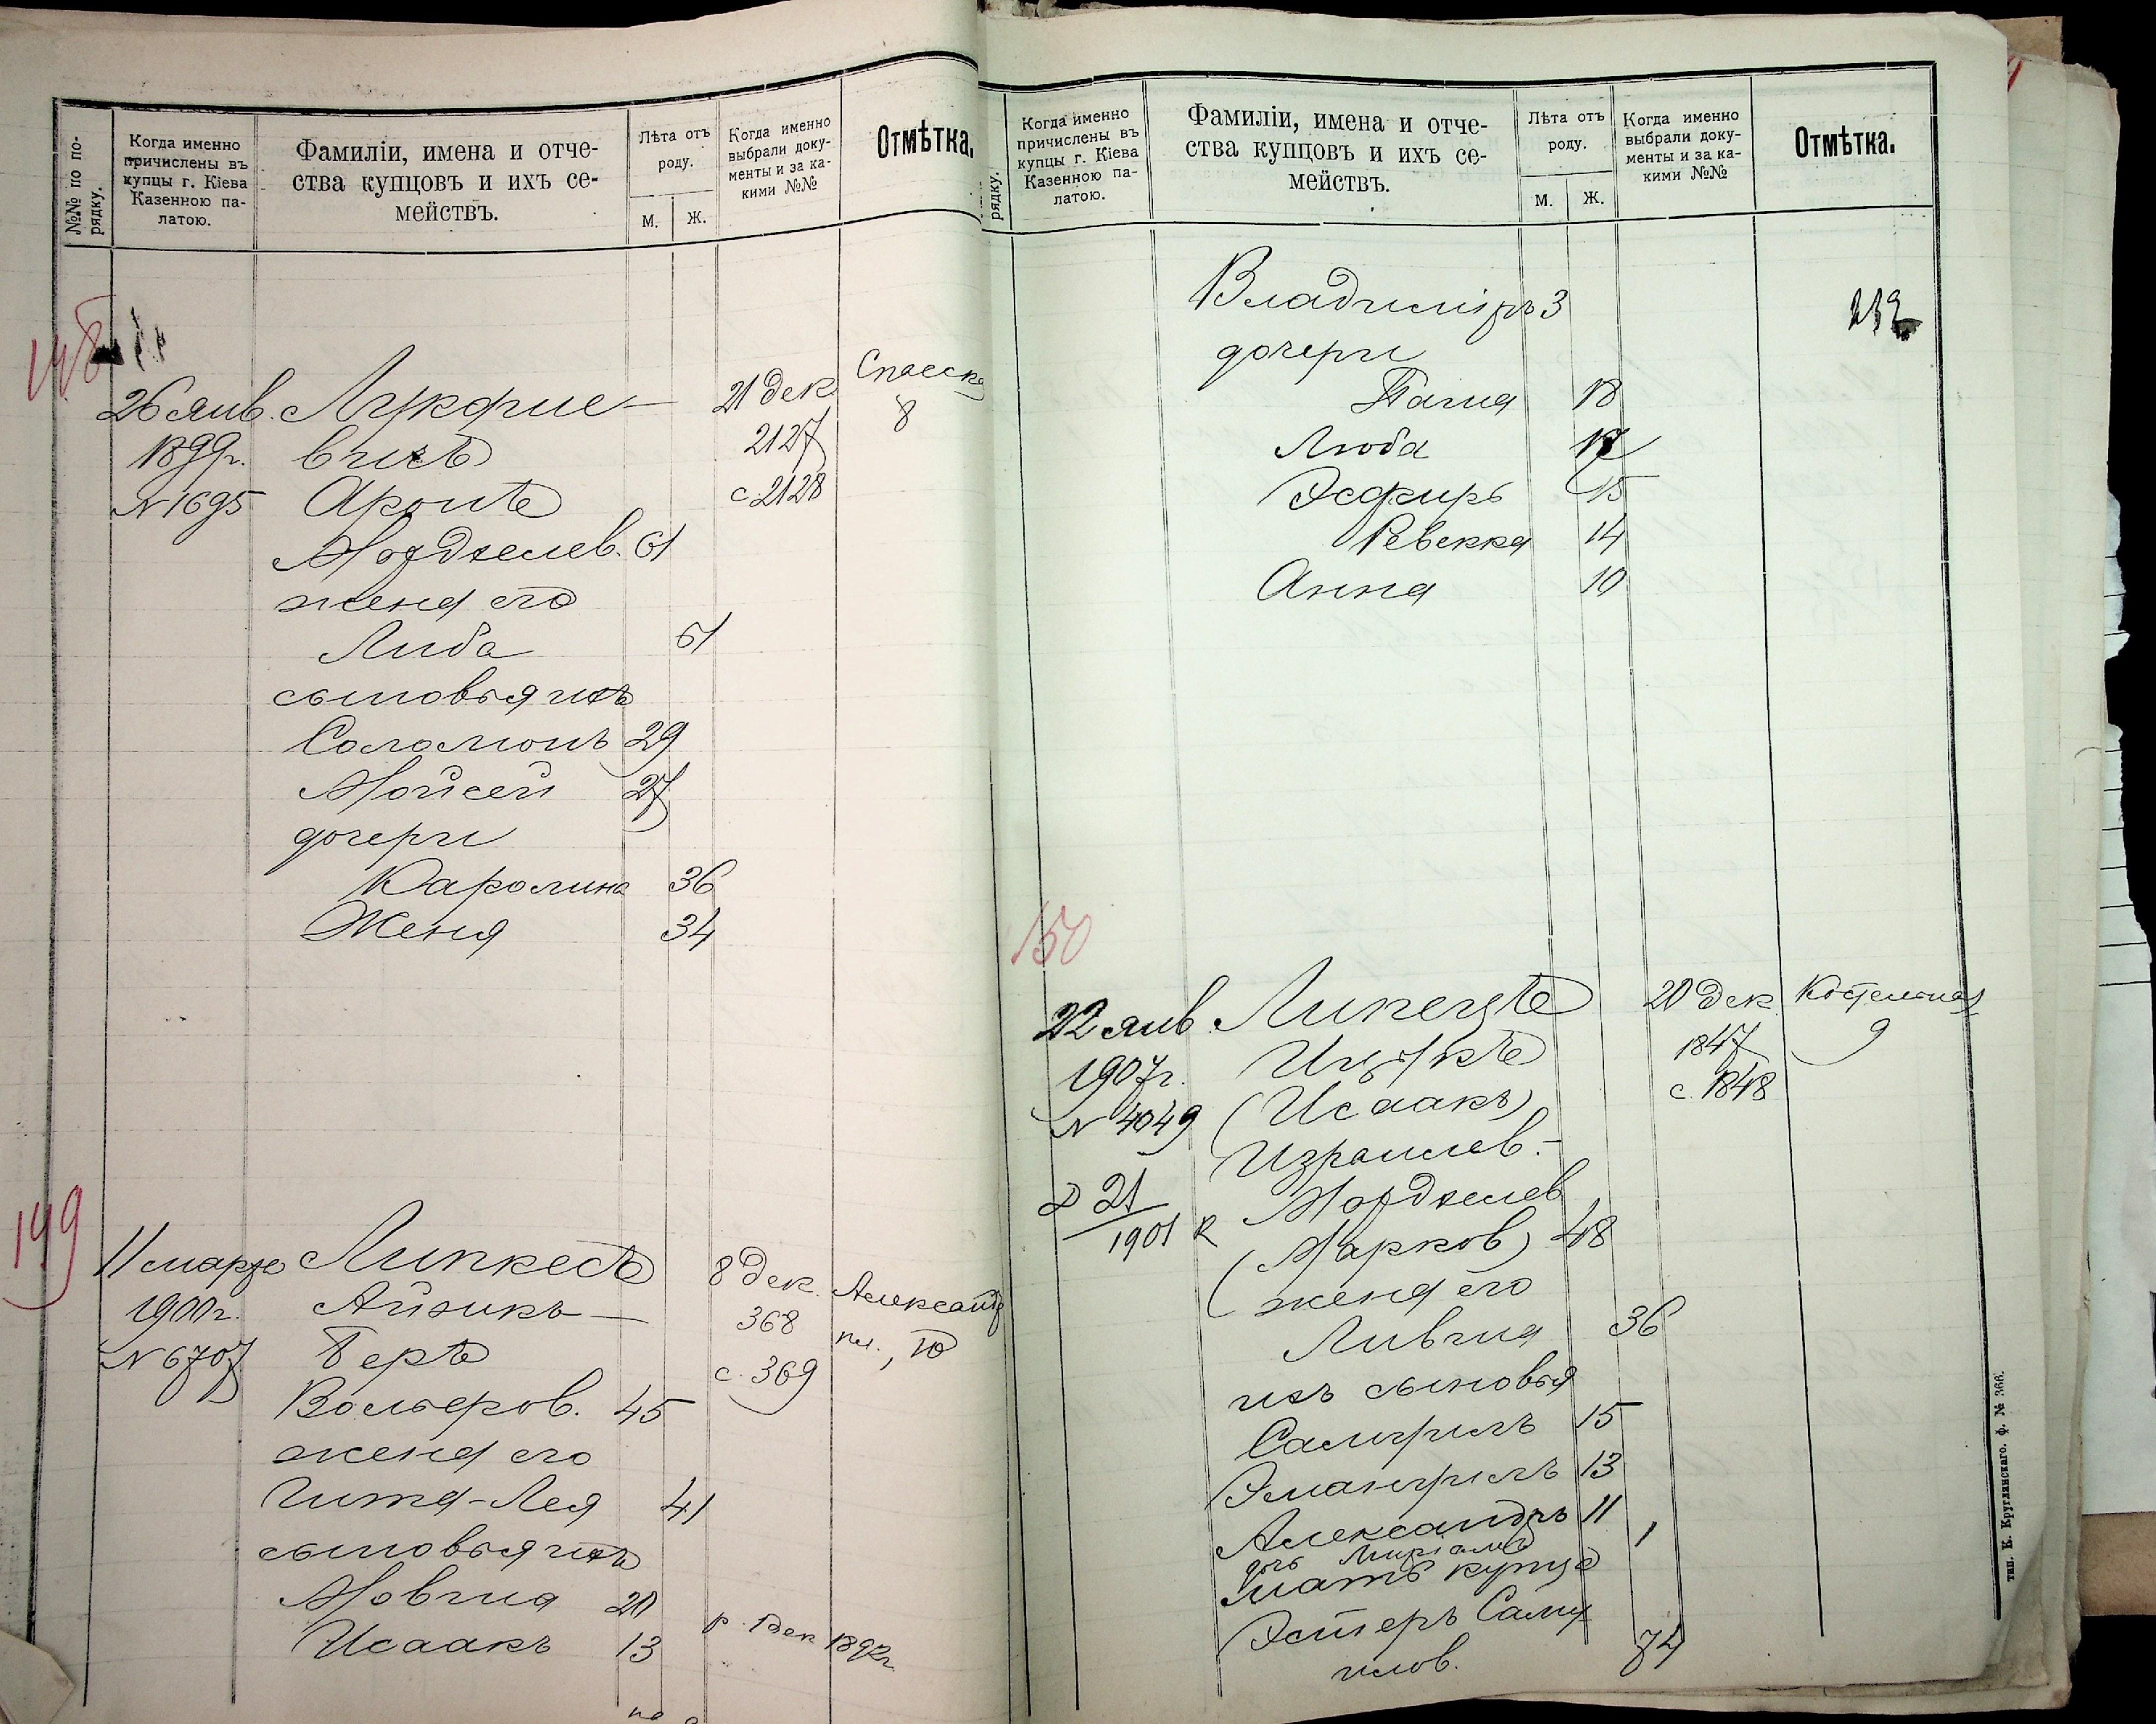 №№ по по-
рядку.
Когда именно
причислены въ
купцы г. Кіева
Казенною па-
латою.
Фамиліи, имена и отче-
ства купцовъ и ихъ се-
мействъ.
Лѣта отъ
роду.
М.
Ж.
Когда именно
выбрали доку-
менты и за ка-
кими №№
Отмѣтка.
148
26 янв.
1899 г.
№ 1695
вичъ
Аронъ
Мордхелев. 61
жена его
Либа 61
сыновья ихъ
Соломонъ 29
Мойсей 27
дочери
Каролина 36
Женя 34
21 дек.
2127
с. 2128
Спасска
8
149
11 марта
1900 г.
№ 6707
Липкесъ
Айзикъ-
Беръ
Вольфов. 45
жена его
Гитя-Лея 41
сыновья ихъ
Мовша 20
Исаакъ 13
р. 1 дек 1892 г.
8 дек.
368
с. 369
Александр
пл., 10
рядку.
Когда именно
причислены въ
купцы г. Кіева
Казенною па-
латою.
Фамиліи, имена и отче-
ства купцовъ и ихъ се-
мействъ.
Лѣта отъ
роду.
М.
Ж.
Когда именно
выбрали доку-
менты и за ка-
кими №№
Отмѣтка.
Владиміръ 3
дочери
18
Люба 17
Эсфирь 15
Ревекка 14
Анна 10
150
22 янв.
1907 г.
№ 4049
21
1901
Липецъ
Ицъкъ
(Исаакъ)
Израилев.-
Мордхелев
(Марков) 48
жена его
Ливша 36
ихъ сыновья
Самуилъ 15
Эмануилъ 13
Александръ 11
дочь Миріамъ 1
мать купца
Эстеръ Саму
илов. 74
20 дек.
1847
с. 1848
Костельная
9
тип. К. Круглянскаго. ф. № 366.